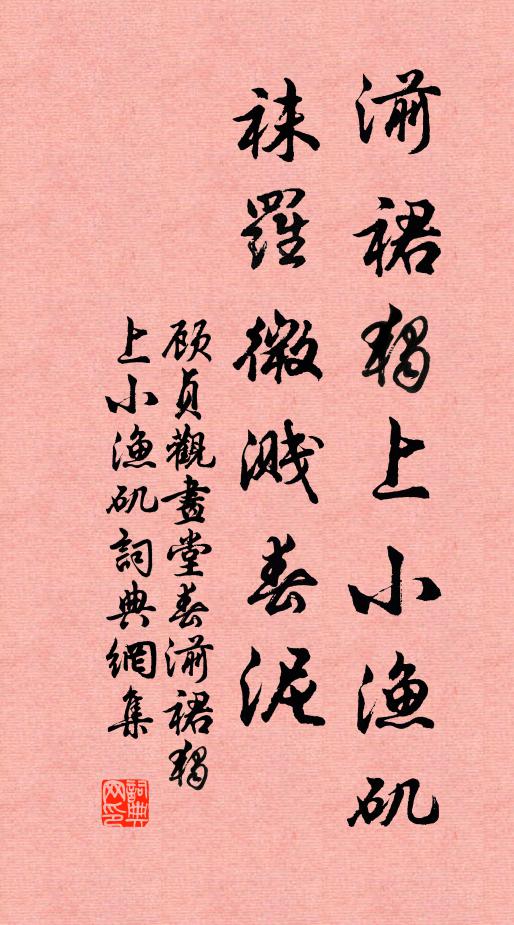 湔裙獨上小漁磯
袜羅微濺春泥
顧貞觀畫堂春湔裙獨
上小漁磯詞典網集
詞典网印